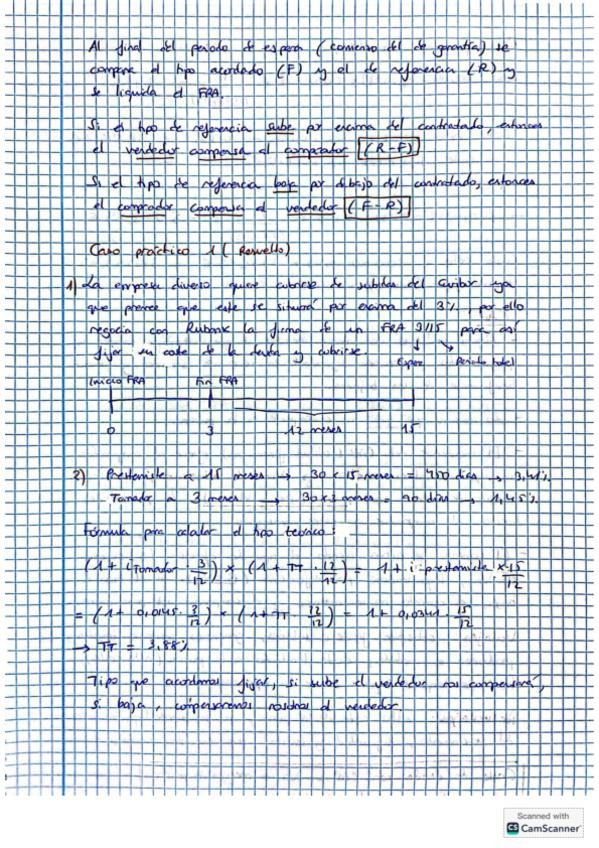 Al final del periodo de espera (comienzo del de garantía) se
compara el tipo acordado (F) y el de referencia (R) y
se liquida el FRA.
Si el tipo de referencia sube por encima del contratado, entonces
el vendedor compensa al comprador (R-F)
Si el tipo de referencia baja por debajo del contratado, entonces
el comprador compensa al vendedor (F-R)
Caso práctico 1 (Resuelto)
1) La empresa diverso quiere cubrirse de subidas del Euribor ya
que prevee que este se situará por encima del 3%, por ello
negocia con Rubank la firma de un FRA 3/15 para así
fijar su coste de la deuda y cubrirse.
Espera Periodo total
Inicio FRA Fin FRA
0 3 12 meses 15
2) Prestamista a 15 meses → 30 x 15 meses = 450 días → 3,41%
Tomador a 3 meses → 30 x 3 meses = 90 días → 1,45%
Fórmula para calcular el tipo teórico:
(1 + i Tomador · 3/12) x (1 + TT · 12/12) = 1 + i prestamista x 15/12
= (1 + 0,0145 · 3/12) x (1 + TT · 12/12) = 1 + 0,0341 · 15/12
→ TT = 3,88%
Tipo que acordamos fijar, si sube el vendedor nos compensará,
si baja, compensaremos nosotros al vendedor.
Scanned with
CS CamScanner